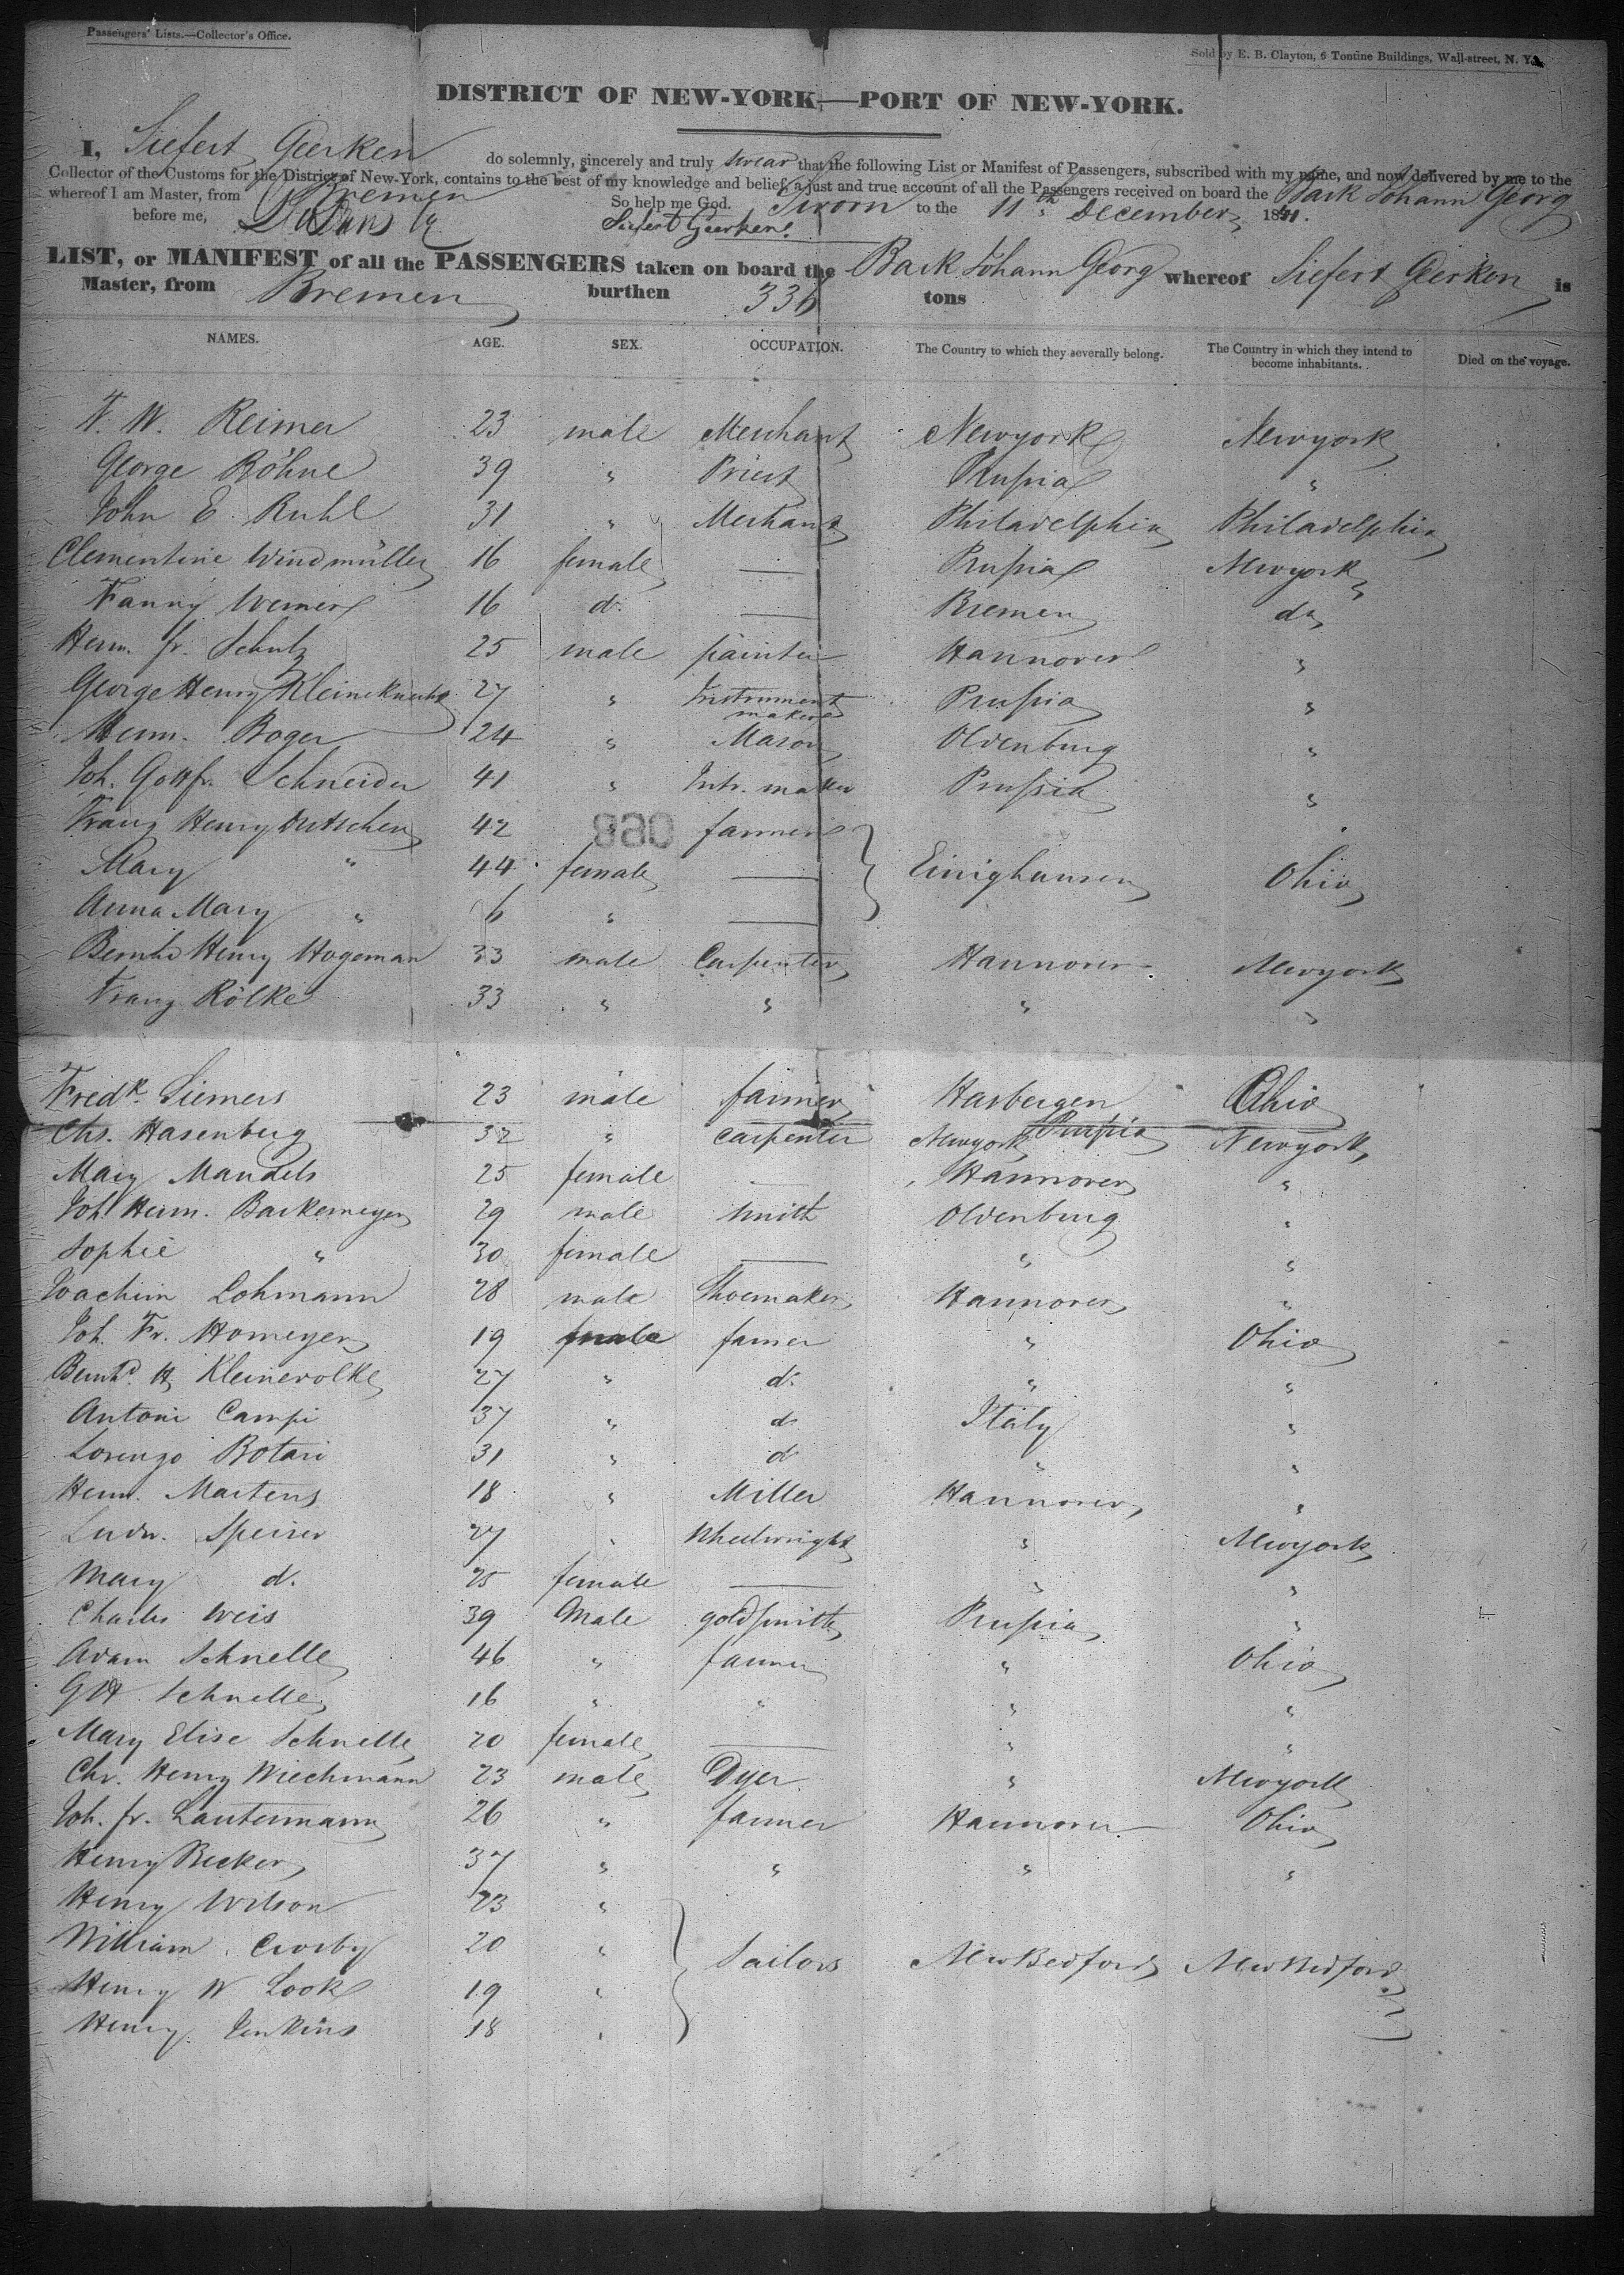 Passengers' Lists.—Collector's Office.
Sold by E. B. Clayton, 6 Tontine Buildings, Wall-street, N. Y.
DISTRICT OF NEW-YORK—PORT OF NEW-YORK.
I, Siefert Geerken do solemnly, sincerely and truly swear that the following List or Manifest of Passengers, subscribed with my name, and now delivered by me to the
Collector of the Customs for the District of New-York, contains to the best of my knowledge and belief, a just and true account of all the Passengers received on board the Bark Johann Georg
whereof I am Master, from Bremen So help me God. Sworn to the 11th December 1841.
before me, Siefert Geerken.
LIST, or MANIFEST of all the PASSENGERS taken on board the Bark Johann Georg whereof Siefert Geerken is
Master, from Bremen burthen 336 tons
NAMES. AGE. SEX. OCCUPATION. The Country to which they severally belong. The Country in which they intend to become inhabitants. Died on the voyage.
F. W. Reimer 23 male Merchant Newyork Newyork
George Böhne 39 " Priest Prussia "
John E. Ruhl 31 " Merchant Philadelphia Philadelphia
Clementine Windmüller 16 female — Prussia Newyork
Fanny Werner 16 do — Bremen do
Herm. fr. Schulz 25 male painter Hannover "
George Henry Kleineknecht 27 " Instrument maker Prussia "
Herm. Boger 24 " Mason Oldenburg "
Joh. Gottfr. Schneider 41 " Instr. maker Prussia "
Franz Henry 42 " farmer
Mary " 44 female — Einighausen Ohio
Anna Mary " 6 " —
Bernhd Henry Hogeman 33 male Carpenter Hannover Newyork
Franz Rölke 33 " " " "
880
Fredk. Siemers 23 male farmer Hasbergen Ohio
Chs. Hasenberg 32 " carpenter Newyork Prussia Newyork
Mary Mandels 25 female — Hannover "
Joh Herm. Barkemeyer 29 male Smith Oldenburg "
Sophie " 30 female — " "
Joachim Lohmann 28 male Shoemaker Hannover "
Joh. Fr. Homeyer 19 male farmer " Ohio
Bernhd. H. Kleinevolke 27 " do " "
Antoni Campi 37 " do Italy "
Lorenzo Botari 31 " do " "
Herm. Martens 18 " Miller Hannover "
Ludw. Speirer 27 " Wheelwright " Newyork
Mary do. 25 female — " "
Charles Weis 39 Male goldsmith Prussia "
Adam Schnelle 46 " farmer " Ohio
Gott. Schnelle 16 " " " "
Mary Elise Schnelle 20 female — " "
Chr. Henry Wiechmann 23 male Dyer " Newyork
Joh. fr. Lautermann 26 " farmer Hannover Ohio
Henry Becker 37 " " " "
Henry Wilson 23 "
William Crosby 20 " Sailors New Bedford New Bedford
Henry W Look 19 "
Henry Jenkins 18 "